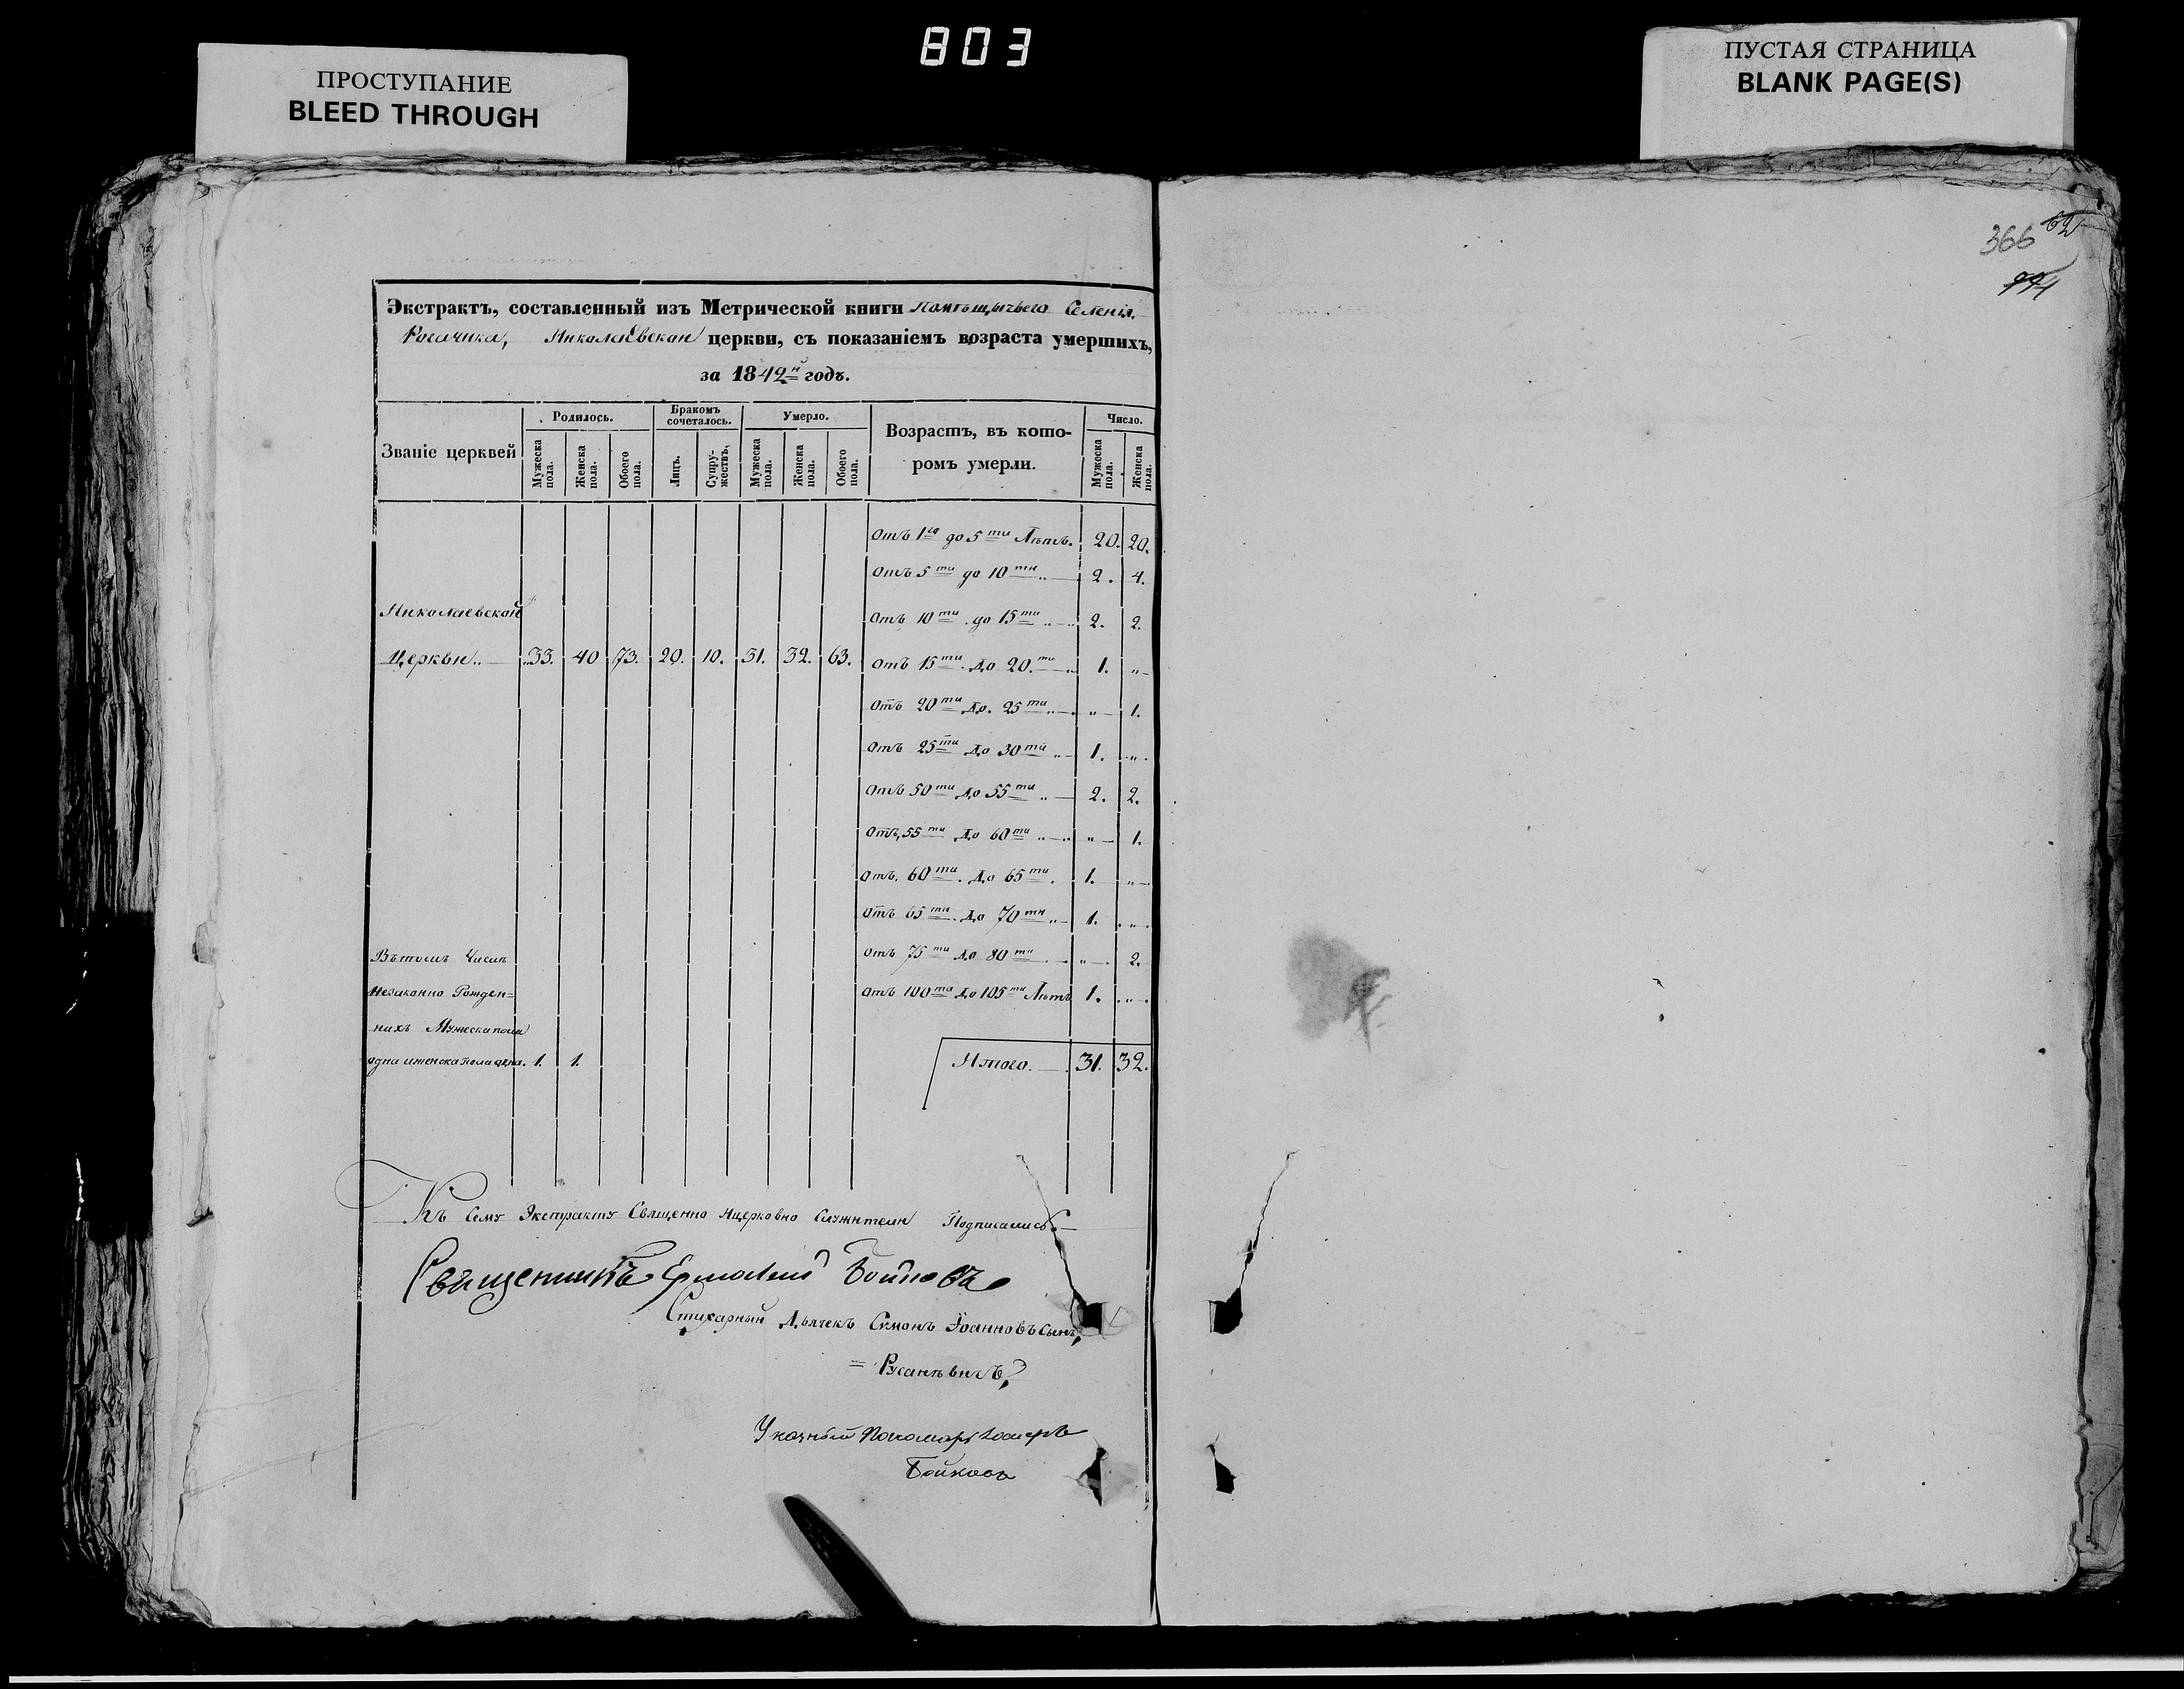 803
ПРОСТУПАНИЕ
BLEED THROUGH
ПУСТАЯ СТРАНИЦА
BLANK PAGE(S)
366 62
Экстрактъ, составленный изъ Метрической книги Помѣщичьего Селенія
Рогачика, Николаевской церкви, съ показаніемъ возраста умершихъ,
за 1842й годъ.
Званіе церквей
Родилось.
Бракомъ сочеталось.
Умерло.
Возрастъ, въ которомъ умерли.
Число.
Мужеска пола.
Женска пола.
Обоего пола.
Лицъ.
Супружествъ.
Мужеска пола.
Женска пола.
Обоего пола.
Мужеска пола.
Женска пола.
Отъ 1го до 5ти Лѣтъ. 20. 20.
Отъ 5ти до 10ти „ 2. 4.
Николаевской
Отъ 10ти до 15ти „ 2. 2.
Церкви „ 33. 40 73. 20. 10. 31. 32. 63.
Отъ 15ти до 20ти „ 1. „
Отъ 20ти до 25ти „ „ 1.
Отъ 25ти до 30ти „ 1. „
Отъ 50ти до 55ти „ 2. 2.
Отъ 55ти до 60ти „ „ 1.
Отъ 60ти до 65ти 1. „
Отъ 65ти до 70ти „ 1. „
Отъ 75ти до 80ти „ 2.
Въ томъ Числѣ
Незаконно Рожден=
Отъ 100та до 105ти Лѣтъ 1. „
нихъ Мужеска пола
одна и женска пола одна. 1. 1.
Итого. 31. 32.
Къ Сему Экстракту Священно и церковно Служители Подписались
Священникъ Ермолай Бойновъ
Стихарный Дьячекъ Сѵмонъ Іоанновъ Сынъ
= Русанѣвичъ
Указный Пономарь
Бойковъ